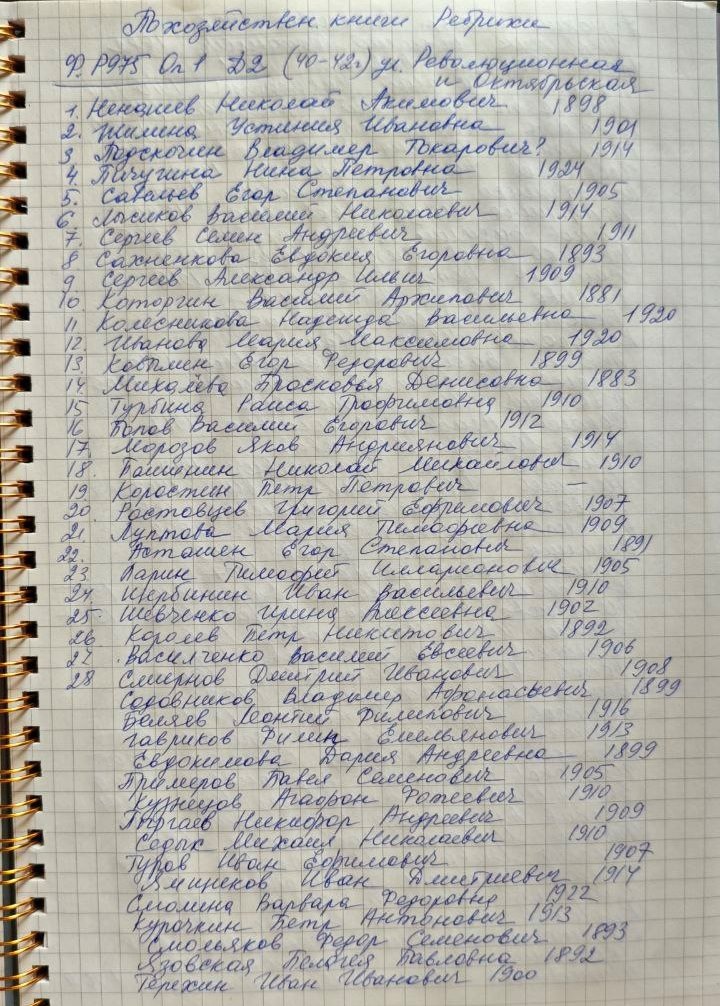 Похозяйствен. книги Ребрихи
Ф. Р975 Оп 1 Д2 (40-42г) ул. Революционная
и Октябрьская
1. Ненашев Николай Акимович 1898
2. Жилина Устиния Ивановна 1901
3 Подскочин Владимер Токарович? 1914
4. Пичугина Нина Петровна 1924
5. Савельев Егор Степанович 1905
6. Лысиков Василий Николаевич 1914
7. Сергеев Семен Андреевич 1911
8 Сахненкова Евдокия Егоровна 1893
9 Сергеев Александр Ильич 1909
10. Которгин Василий Архипович 1881
11 Колесникова Надежда Васильевна 1920
12. Иванова Мария Максимовна 1920
13. Ковылин Егор Федорович 1899
14. Михалева Просковья Денисовна 1883
15 Турбина Раиса Трофимовна 1910
16 Попов Василий Егорович 1912
17. Морозов Яков Андриянович 1914
18. Пашинин Николай Михайлович 1910
19 Коростин Петр Петрович —
20 Ростовцев Григорий Ефимович 1907
21. Луптова Мария Тимофеевна 1909
22. Асташен Егор Степанович 1891
23. Ларин Тимофей Илларионович 1905
24 Щербинин Иван Васильевич 1910
25. Шевченко Ирина Алексеевна 1902
26. Королев Петр Никитович 1892
27. Василченко Василий Евсеевич 1906
28 Смирнов Дмитрий Иванович 1908
Садовников Владимер Афонасьевич 1899
Беляев Леонтий Филипович 1916
Гавриков Филип Емельянович 1913
Евдокимова Дария Андреевна 1899
Примеров Павел Семенович 1905
Кузнецов Агафон Фотеевич 1910
Пургаев Никифор Андреевич 1909
Седык Михаил Николаевич 1910
Туров Иван Ефимович 1907
Ямщиков Иван Дмитриевич 1914
Смолина Варвара Федоровна 1922
Курочкин Петр Антонович 1913
Смольяков Федор Семенович 1893
Язовская Пелагея Павловна 1892
Терехин Иван Иванович 1900